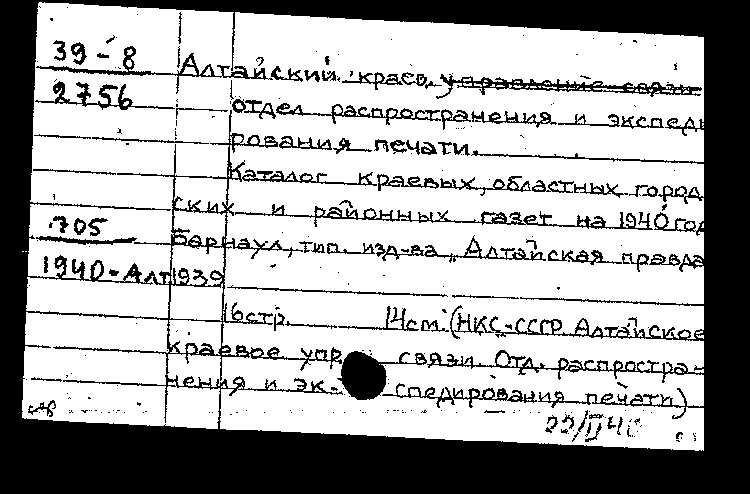 39-8
2756
Алтайский краев. управление связи
отдел распространения и экспеди
рования печати.
Каталог краевых, областных город
ских и районных газет на 1940 год
705
1940-Алт
Барнаул, тип. изд-ва „Алтайская правда
1939
16стр. 14см. (НКС-СССР Алтайское
краевое упр. связи. Отд. распростра-
нения и эк- спедирования печати)
22/II 40